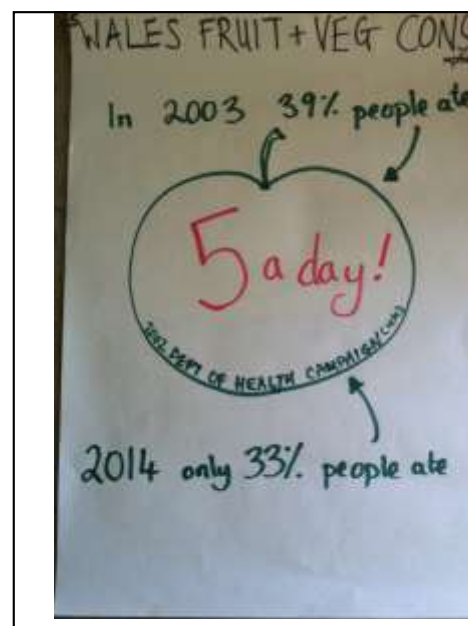 WALES FRUIT + VEG CONS
In 2003 39% people ate
5 a day!
2002 DEPT OF HEALTH CAMPAIGN (UK)
2014 only 33% people ate